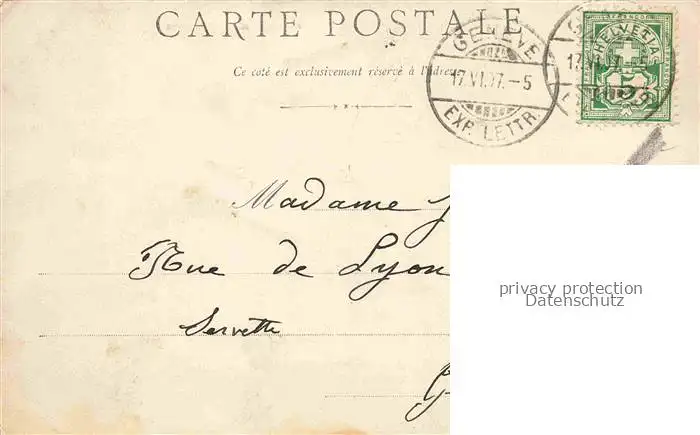 CARTE POSTALE
Ce côté est exclusivement réservé à l'adresse
GENÈVE
17.VI.07.-5
EXP. LETTR.
FRANCO
HELVETIA
5
Madame J
Rue de Lyon
Servette
G
privacy protection
Datenschutz